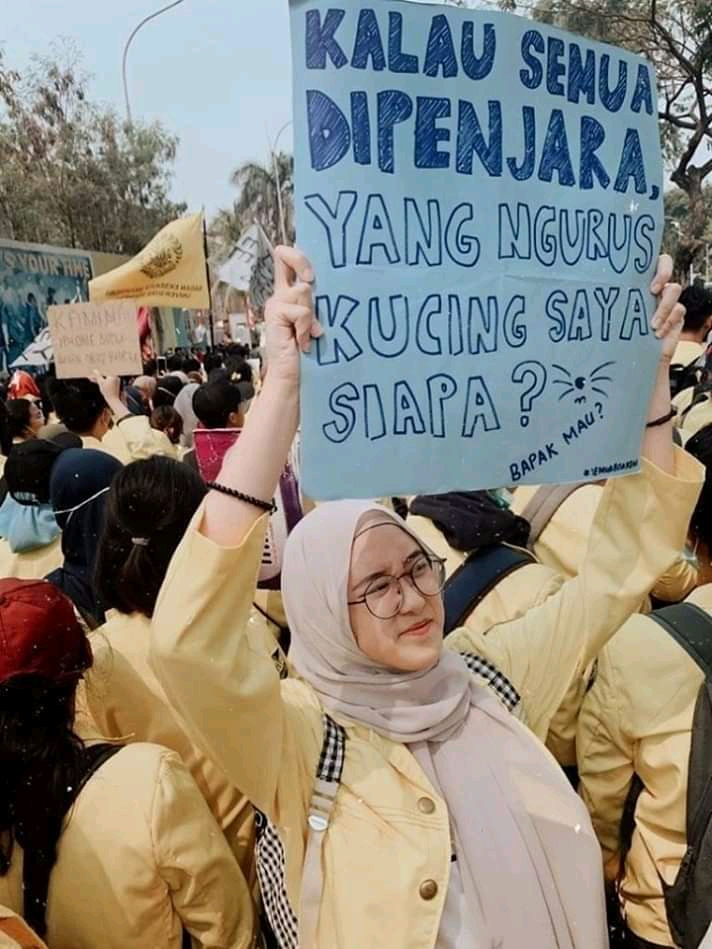 KALAU SEMUA
DIPENJARA,
YANG NGURUS
KUCING SAYA
SIAPA?
BAPAK MAU?
#SEMUABISAKENA
S YOUR TIME